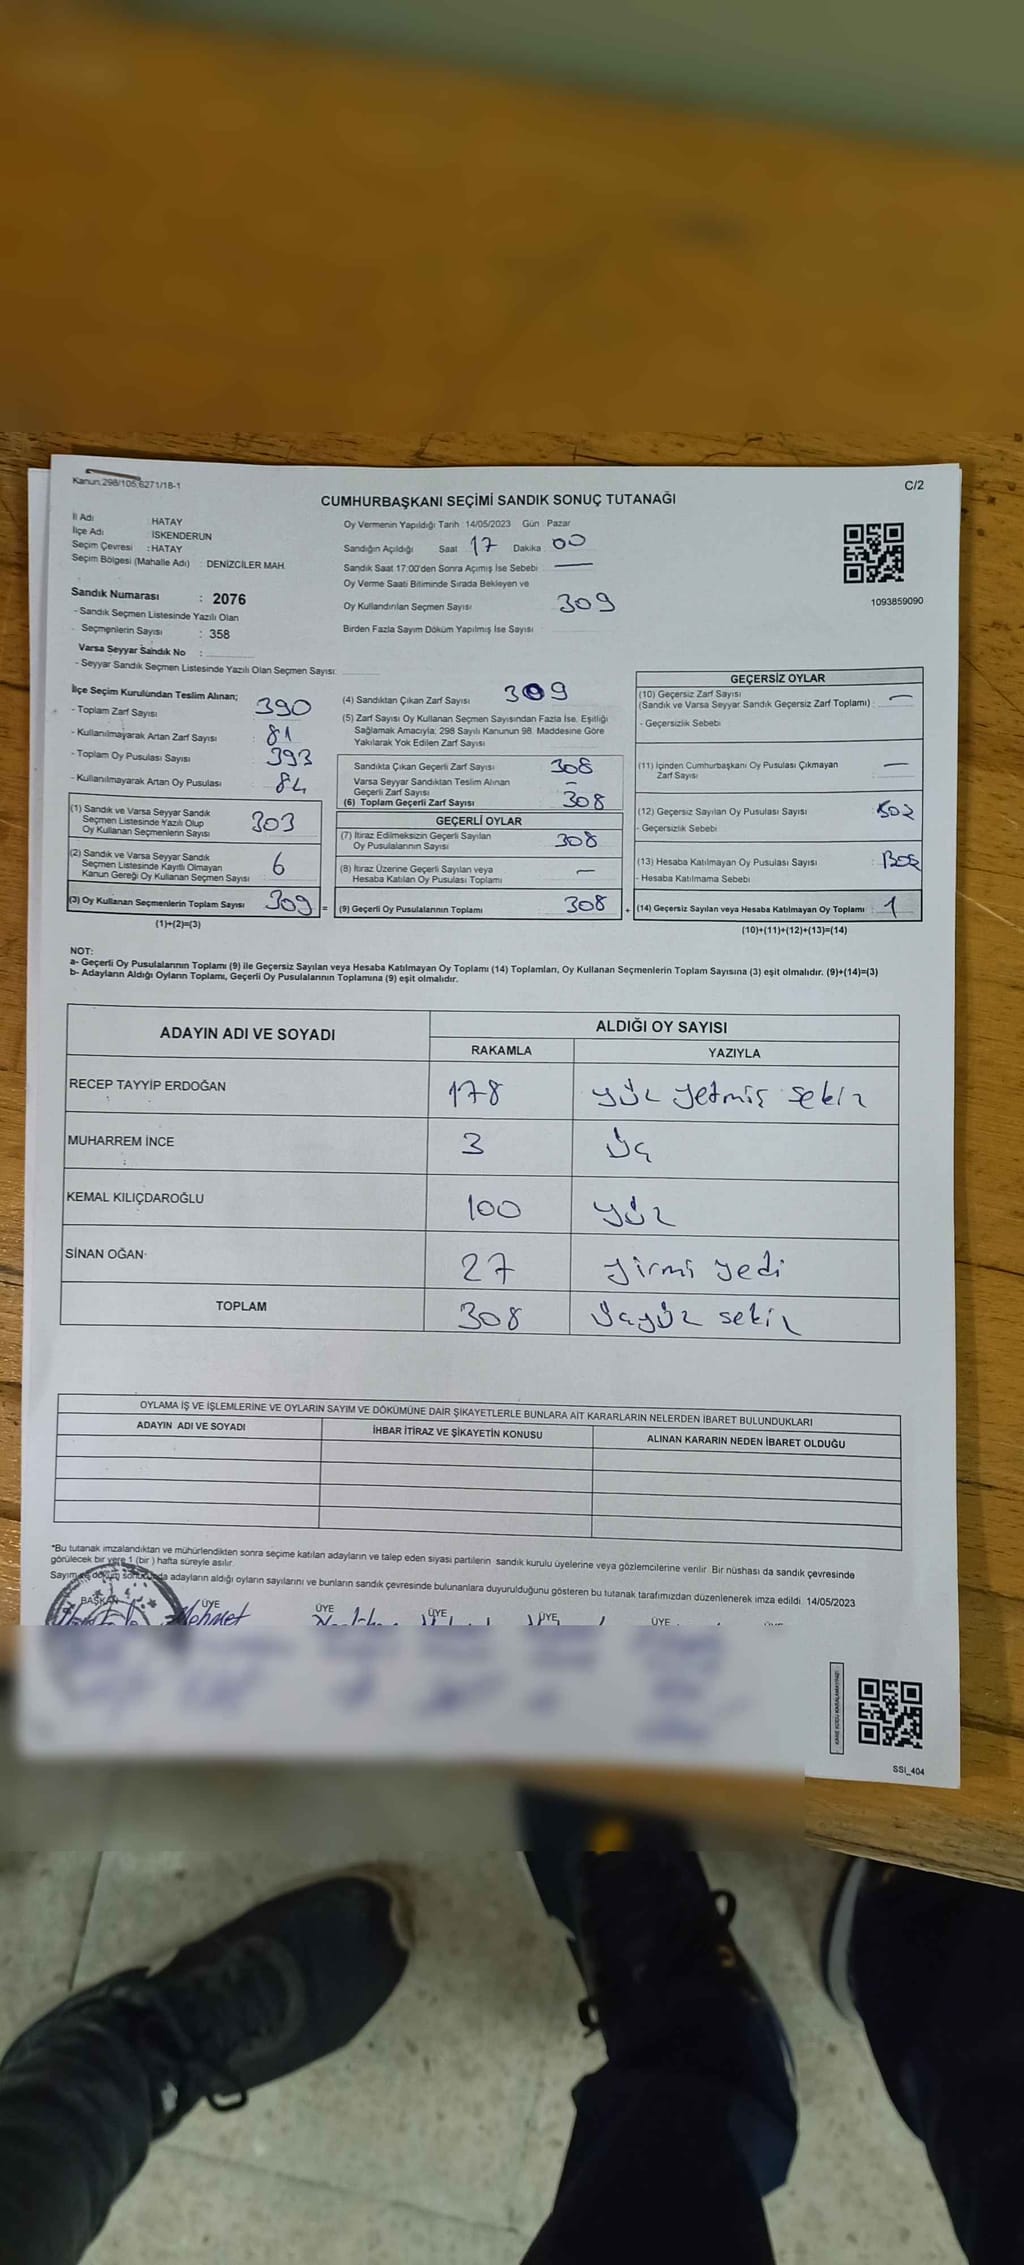 Kanun:298/105,6271/18-1
C/2
CUMHURBAŞKANI SEÇİMİ SANDIK SONUÇ TUTANAĞI
İl Adı : HATAY
İlçe Adı : İSKENDERUN
Seçim Çevresi : HATAY
Seçim Bölgesi (Mahalle Adı) : DENİZCİLER MAH.
Sandık Numarası : 2076
- Sandık Seçmen Listesinde Yazılı Olan
Seçmenlerin Sayısı : 358
Varsa Seyyar Sandık No :
- Seyyar Sandık Seçmen Listesinde Yazılı Olan Seçmen Sayısı:
Oy Vermenin Yapıldığı Tarih : 14/05/2023 Gün Pazar
Sandığın Açıldığı Saat 17 Dakika 00
Sandık Saat 17:00'den Sonra Açımış İse Sebebi —
Oy Verme Saati Bitiminde Sırada Bekleyen ve
Oy Kullandırılan Seçmen Sayısı 309
Birden Fazla Sayım Döküm Yapılmış İse Sayısı
1093859090
İlçe Seçim Kurulundan Teslim Alınan;
- Toplam Zarf Sayısı : 390
- Kullanılmayarak Artan Zarf Sayısı : 81
- Toplam Oy Pusulası Sayısı : 393
- Kullanılmayarak Artan Oy Pusulası : 84
(1) Sandık ve Varsa Seyyar Sandık
Seçmen Listesinde Yazılı Olup
Oy Kullanan Seçmenlerin Sayısı 303
(2) Sandık ve Varsa Seyyar Sandık
Seçmen Listesinde Kayıtlı Olmayan
Kanun Gereği Oy Kullanan Seçmen Sayısı 6
(3) Oy Kullanan Seçmenlerin Toplam Sayısı 309 =
(1)+(2)=(3)
(4) Sandıktan Çıkan Zarf Sayısı 309
(5) Zarf Sayısı Oy Kullanan Seçmen Sayısından Fazla İse, Eşitliği
Sağlamak Amacıyla; 298 Sayılı Kanunun 98. Maddesine Göre
Yakılarak Yok Edilen Zarf Sayısı
Sandıkta Çıkan Geçerli Zarf Sayısı 308
Varsa Seyyar Sandıktan Teslim Alınan
Geçerli Zarf Sayısı –
(6) Toplam Geçerli Zarf Sayısı 308
GEÇERLİ OYLAR
(7) İtiraz Edilmeksizin Geçerli Sayılan
Oy Pusulalarının Sayısı 308
(8) İtiraz Üzerine Geçerli Sayılan veya
Hesaba Katılan Oy Pusulası Toplamı —
(9) Geçerli Oy Pusulalarının Toplamı 308 +
GEÇERSİZ OYLAR
(10) Geçersiz Zarf Sayısı
(Sandık ve Varsa Seyyar Sandık Geçersiz Zarf Toplamı) : —
- Geçersizlik Sebebi
(11) İçinden Cumhurbaşkanı Oy Pusulası Çıkmayan
Zarf Sayısı —
(12) Geçersiz Sayılan Oy Pusulası Sayısı
- Geçersizlik Sebebi
(13) Hesaba Katılmayan Oy Pusulası Sayısı :
- Hesaba Katılmama Sebebi
(14) Geçersiz Sayılan veya Hesaba Katılmayan Oy Toplamı : 1
(10)+(11)+(12)+(13)=(14)
NOT:
a- Geçerli Oy Pusulalarının Toplamı (9) ile Geçersiz Sayılan veya Hesaba Katılmayan Oy Toplamı (14) Toplamları, Oy Kullanan Seçmenlerin Toplam Sayısına (3) eşit olmalıdır. (9)+(14)=(3)
b- Adayların Aldığı Oyların Toplamı, Geçerli Oy Pusulalarının Toplamına (9) eşit olmalıdır.
ADAYIN ADI VE SOYADI
ALDIĞI OY SAYISI
RAKAMLA YAZIYLA
RECEP TAYYİP ERDOĞAN 178 yüz yetmiş sekiz
MUHARREM İNCE 3 üç
KEMAL KILIÇDAROĞLU 100 yüz
SİNAN OĞAN 27 yirmi yedi
TOPLAM 308 üçyüz sekiz
OYLAMA İŞ VE İŞLEMLERİNE VE OYLARIN SAYIM VE DÖKÜMÜNE DAİR ŞİKAYETLERLE BUNLARA AİT KARARLARIN NELERDEN İBARET BULUNDUKLARI
ADAYIN ADI VE SOYADI İHBAR İTİRAZ VE ŞİKAYETİN KONUSU ALINAN KARARIN NEDEN İBARET OLDUĞU
*Bu tutanak imzalandıktan ve mühürlendikten sonra seçime katılan adayların ve talep eden siyasi partilerin sandık kurulu üyelerine veya gözlemcilerine verilir. Bir nüshası da sandık çevresinde
görülecek bir yere 1 (bir ) hafta süreyle asılır.
Sayım ve döküm sonucunda adayların aldığı oyların sayılarını ve bunların sandık çevresinde bulunanlara duyurulduğunu gösteren bu tutanak tarafımızdan düzenlenerek imza edildi. 14/05/2023
BAŞKAN ÜYE ÜYE ÜYE ÜYE ÜYE ÜYE
Mehmet
SSİ_404